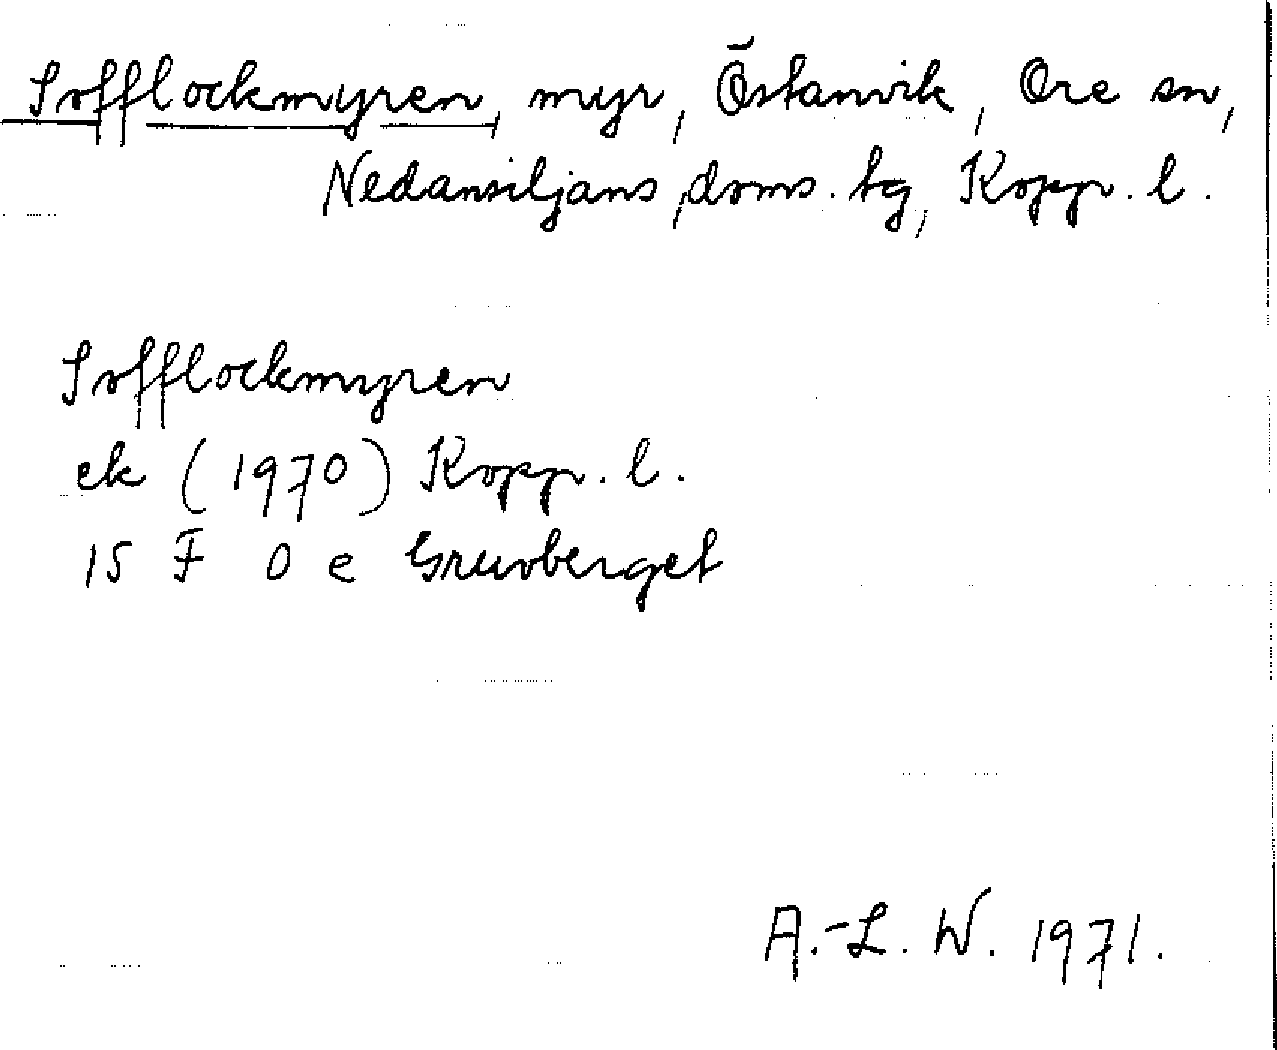 Sofflockmyren, myr, Östanvik, Ore sn,
Nedansiljans doms. tg, Kopp. l.
Sofflockmyren
ek (1970) Kopp. l.
15 F 0 e Gruvberget
A.-L. W. 1971.